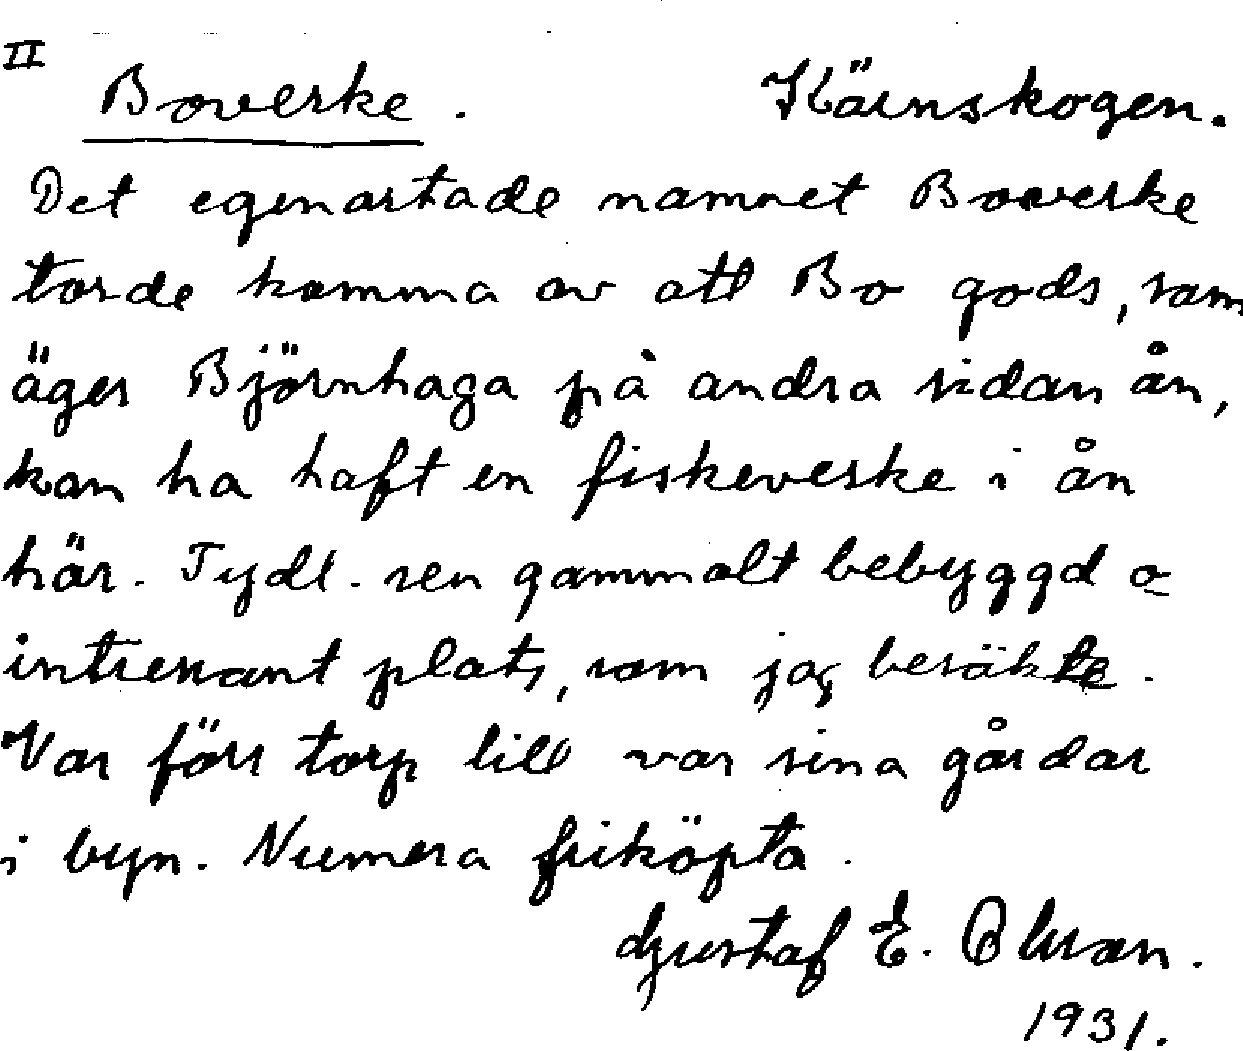 II
Boverke. Kärnskogen.
Det egenartade namnet Boverke
torde komma av att Bo gods, som
äger Björnhaga på andra sidan ån,
kan ha haft en fiskeverke i ån
här. Tydl. ren gammalt bebyggd o
intressant plats, som jag besökte.
Var förr torp till var sina gårdar
i byn. Numera friköpta.
Gustaf E. Olsson.
1931.